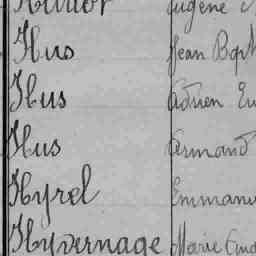 Eugène
Hus Jean Bapt
Hus Adrien Eu
Hus Armand
Hyrel Emmanu
Hyvernage Marie